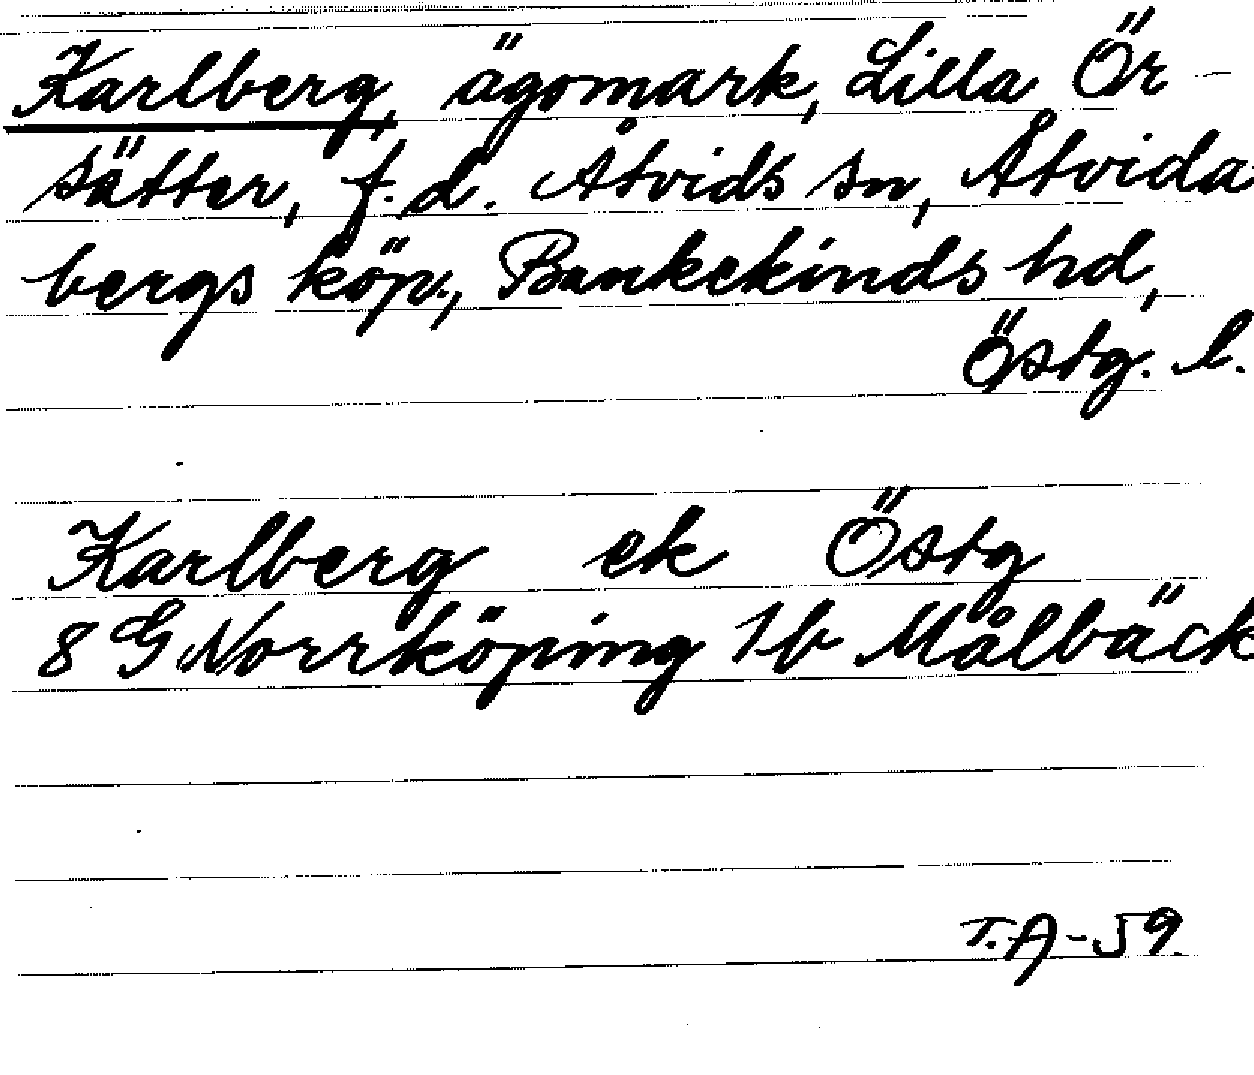 Karlberg, ägomark, Lilla Ör-
sätter, f.d. Åtvids sn, Åtvida
bergs köp., Bankekinds hd,
Östg. l.
Karlberg ek Östg
8 G Norrköping 1b Målbäck
T.A-59.